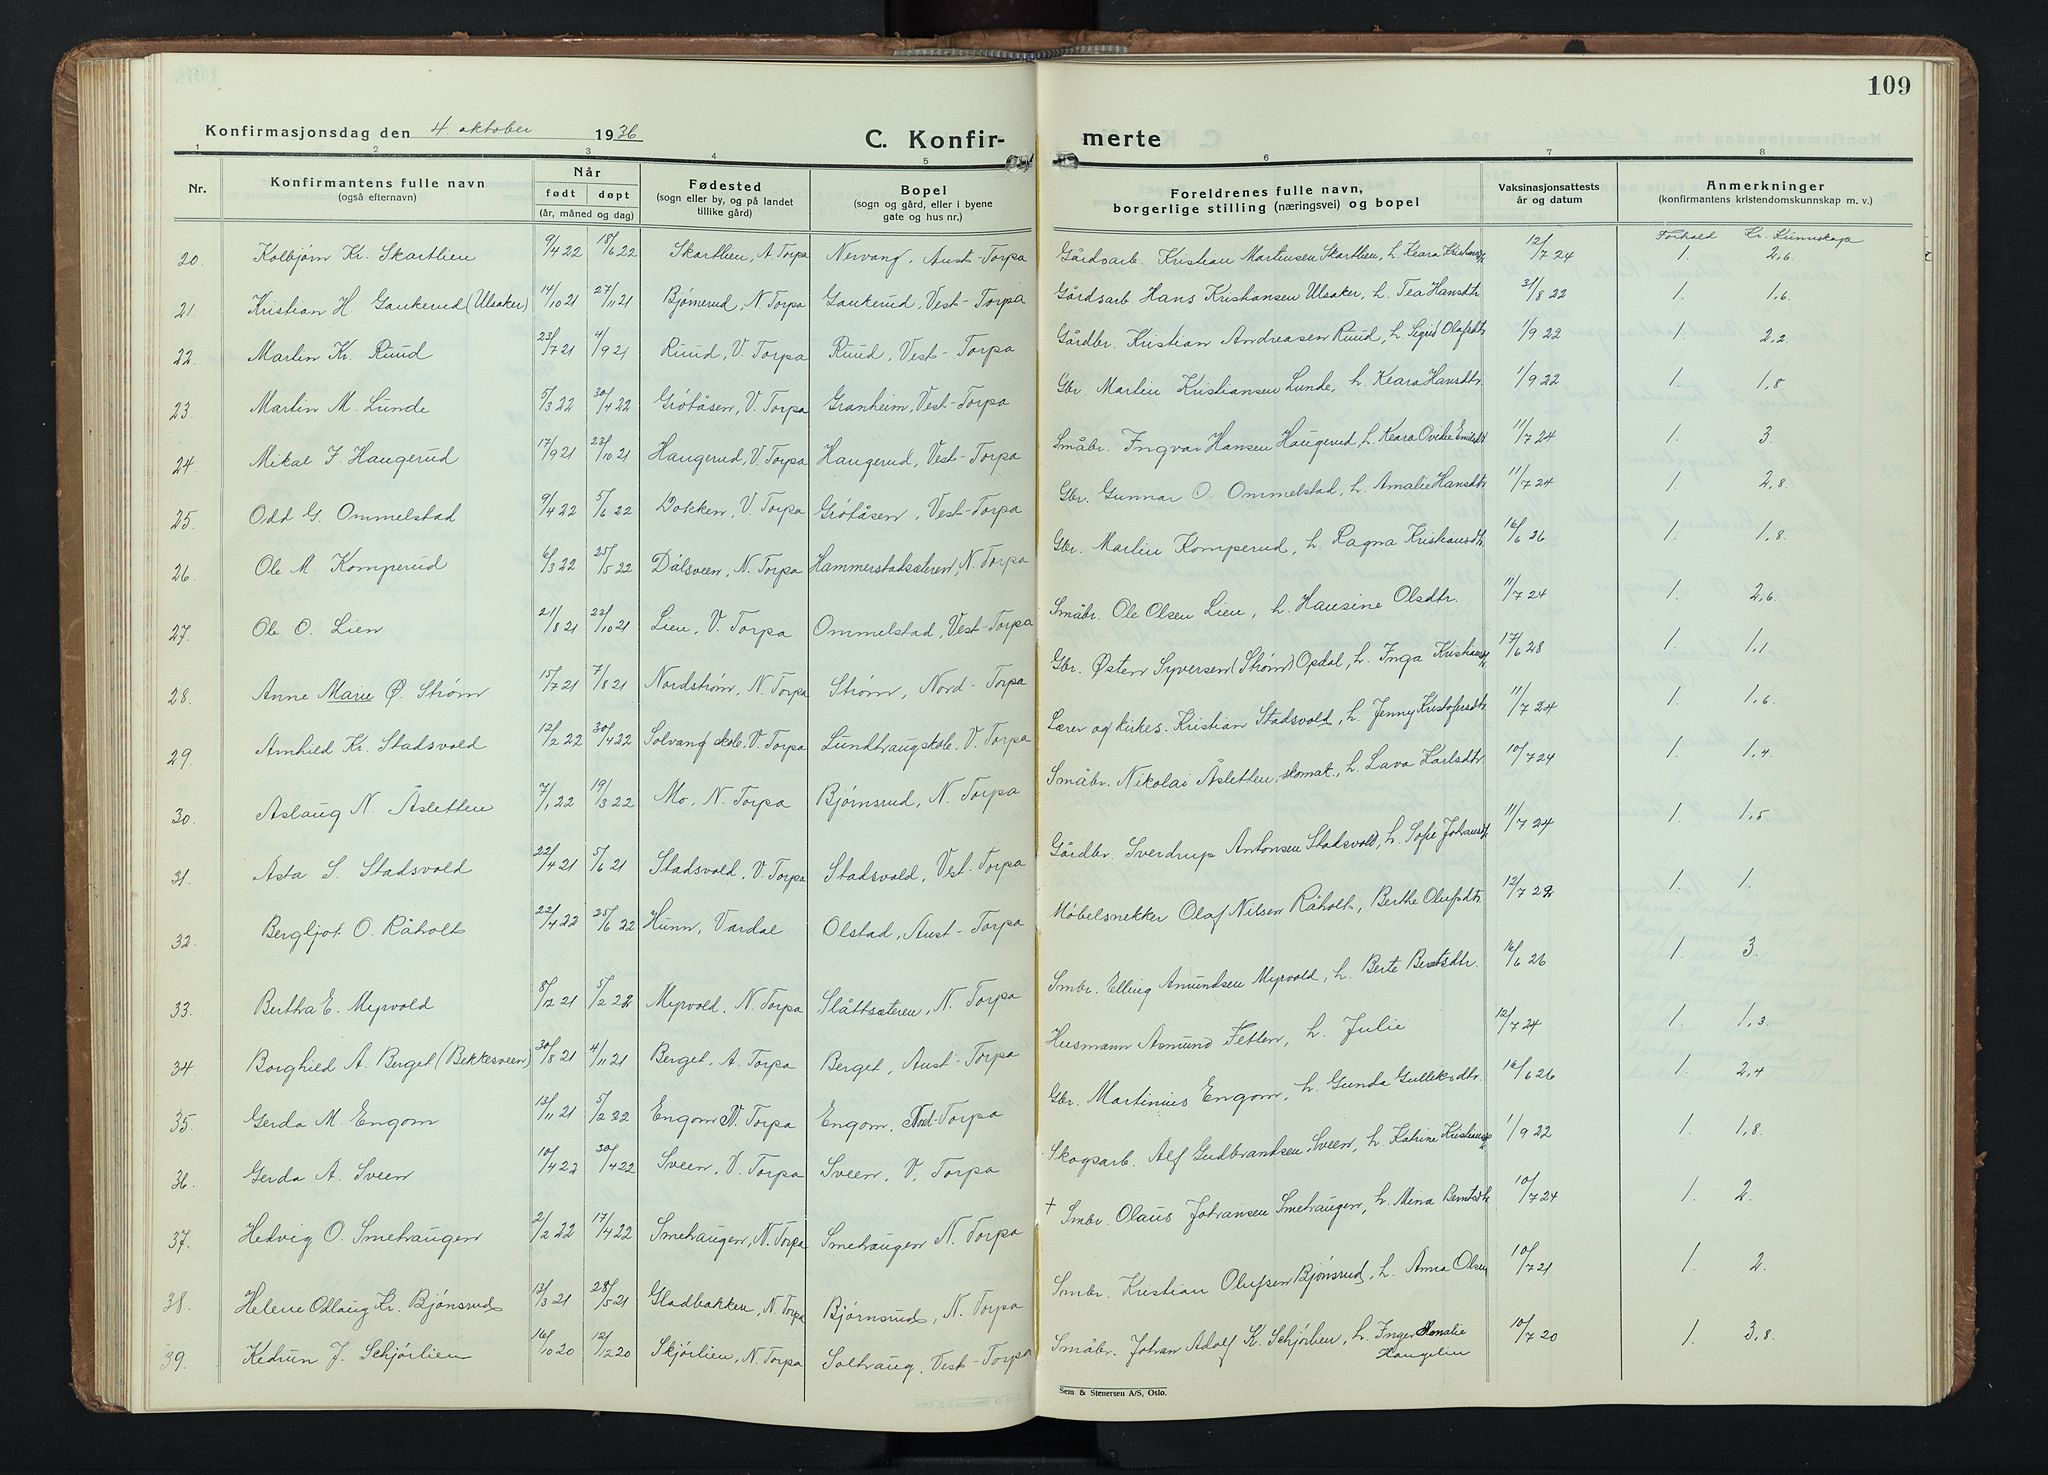 109
Konfirmasjonsdag den 4. oktober 1936
C. Konfir- merte
1 2 3 4 5 6 7 8
Nr. Konfirmantens fulle navn (også efternavn) Når født døpt (år, måned og dag) Fødested (sogn eller by, og på landet tillike gård) Bopel (sogn og gård, eller i byene gate og hus nr.) Foreldrenes fulle navn, borgerlige stilling (næringsvei) og bopel Vaksinasjonsattests år og datum Anmerkninger (konfirmantens kristendomskunnskap m. v.)
Forhold Kr. Kunnskap
20. Kolbjørn Kr. Skartlien 9/4 22 18/6 22 Skartlien, A. Torpa Nervang, Aust-Torpa Gårdsarb. Kristian Martinsen Skartlien, h. Keara 12/7 24 1. 2,6
21. Kristian H. Gaukerud (Ulsaker) 14/10 21 27/11 21 Bjømerud, N. Torpa Gaukerud, Vest-Torpa Gårdsarb. Hans Kristiansen Ulsaker, h. Tea Hansdtr 31/8 22 1. 1,6
22. Martin Kr. Ruud 23/7 21 4/9 21 Ruud, V. Torpa Ruud, Vest-Torpa Gårdbr. Kristian Andreasen Ruud, h. Sigrid Olafsdtr 1/9 22 1. 2,2
23. Martin M. Lunde 5/3 22 30/4 22 Grøtåsen, V. Torpa Granheim, Vest-Torpa Gbr. Martin Kristiansen Lunde, h. Keara Hansdtr. 1/9 22 1. 1,8
24. Mikal I. Haugerud 17/9 21 23/10 21 Haugerud, V. Torpa Haugerud, Vest-Torpa Småbr. Ingvar Hansen Haugerud h. Keara Ovidie 11/7 24 1. 3.
25. Odd G. Ommelstad 9/4 22 5/6 22 Dokken, V. Torpa Grøtåsen, Vest-Torpa Gbr. Gunnar O. Ommelstad, h. Amalie Hansdtr 11/7 24 1. 2,8
26. Ole M. Komperud 6/3 22 25/5 22 Dålsveen, N. Torpa Hammerstadsæteren, N. Torpa Gbr. Martin Komperud, h. Ragna Kristiansdtr 16/6 26 1. 1,8
27. Ole O. Lien 21/8 21 23/10 21 Lien, V. Torpa Ommelstad, Vest-Torpa Småbr. Ole Olsen Lien, h. Hansine Olsdtr. 11/7 24 1. 2,6
28. Anne Marie Ø. Strøm 15/7 21 7/8 21 Nordstrøm, N. Torpa Strøm, Nord-Torpa Gbr. Østen Syversen (Strøm) Opdal, h. Inga 17/6 28 1. 1,1
29. Arnhild Kr. Stadsvold 12/2 22 30/4 22 Solvang skole, V. Torpa Lundhaugskole, V. Torpa Lærer og kirkes. Kristian Stadsvold, h. Jenny Kristofersdtr 11/7 24 1. 1,6
30. Aslaug N. Åsletten 7/1 22 19/3 22 Mo, N. Torpa Bjørnsrud, N. Torpa Småbr. Nikolai Åsletten, skomak., h. Lava Karlsdtr. 10/7 24 1. 1,4
31. Asta S. Stadsvold 22/4 21 5/6 21 Stadsvold, V. Torpa Stadsvold, Vest-Torpa Gårdbr. Sverdrup Antonsen Stadsvold, h. Sofie 11/7 24 1. 1,5
32. Bergljot O. Råholt 22/4 22 25/6 22 Hunn, Vardal Olstad, Aust-Torpa Møbelsnekker Olaf Nilsen Råholt, Berthe Olufsdtr 12/7 29 1. 1.
33. Bertha E. Myrvold 8/12 21 5/2 22 Myrvold, N. Torpa Slåttsæteren, N. Torpa Smbr. Elling Amundsen Myrvold, h. Berte Berntsdtr. 16/6 26 1. 3.
34. Borghild A. Berget (Bekkesveen) 30/8 21 4/11 21 Berget, A. Torpa Berget, Aust-Torpa Husmann Asmund Fetten, h. Julie 12/7 24 1. 1,3
35. Gerda M. Engom 13/11 21 5/2 22 Engom N. Torpa Engom, Nord-Torpa Gbr. Martinius Engom, h. Gunda Gulleksdtr. 16/6 26 1. 2,4
36. Gerda A. Sveen 10/4 22 30/4 22 Sveen, V. Torpa Sveen, V. Torpa Skogsarb. Alf Gudbrandsen Sveen, h. Katrine 1/9 22 1. 1,8
37. Hedvig O. Smehaugen 2/2 22 17/4 22 Smehaugen, N. Torpa Smehaugen N. Torpa † Smbr. Olaus Johansen Smehaugen, h. Mina Berntsdtr 10/7 24 1. 2.
38. Helene Odlaug Kr. Bjønsrud 13/3 21 28/5 21 Gladbakken, N. Torpa Bjørnsrud, N. Torpa Smbr. Kristian Olufsen Bjønsrud, h. Anna Olsen 10/7 21 1. 2.
39. Kedrun J. Schjørlien 16/10 20 12/12 20 Skjørlien, N. Torpa Solhaug, Vest-Torpa Småbr. Johan Adolf K. Schjørlien, h. Inger Amalie Haugelin 10/7 20 1. 3,8
Sem & Stenersen A/S, Oslo.